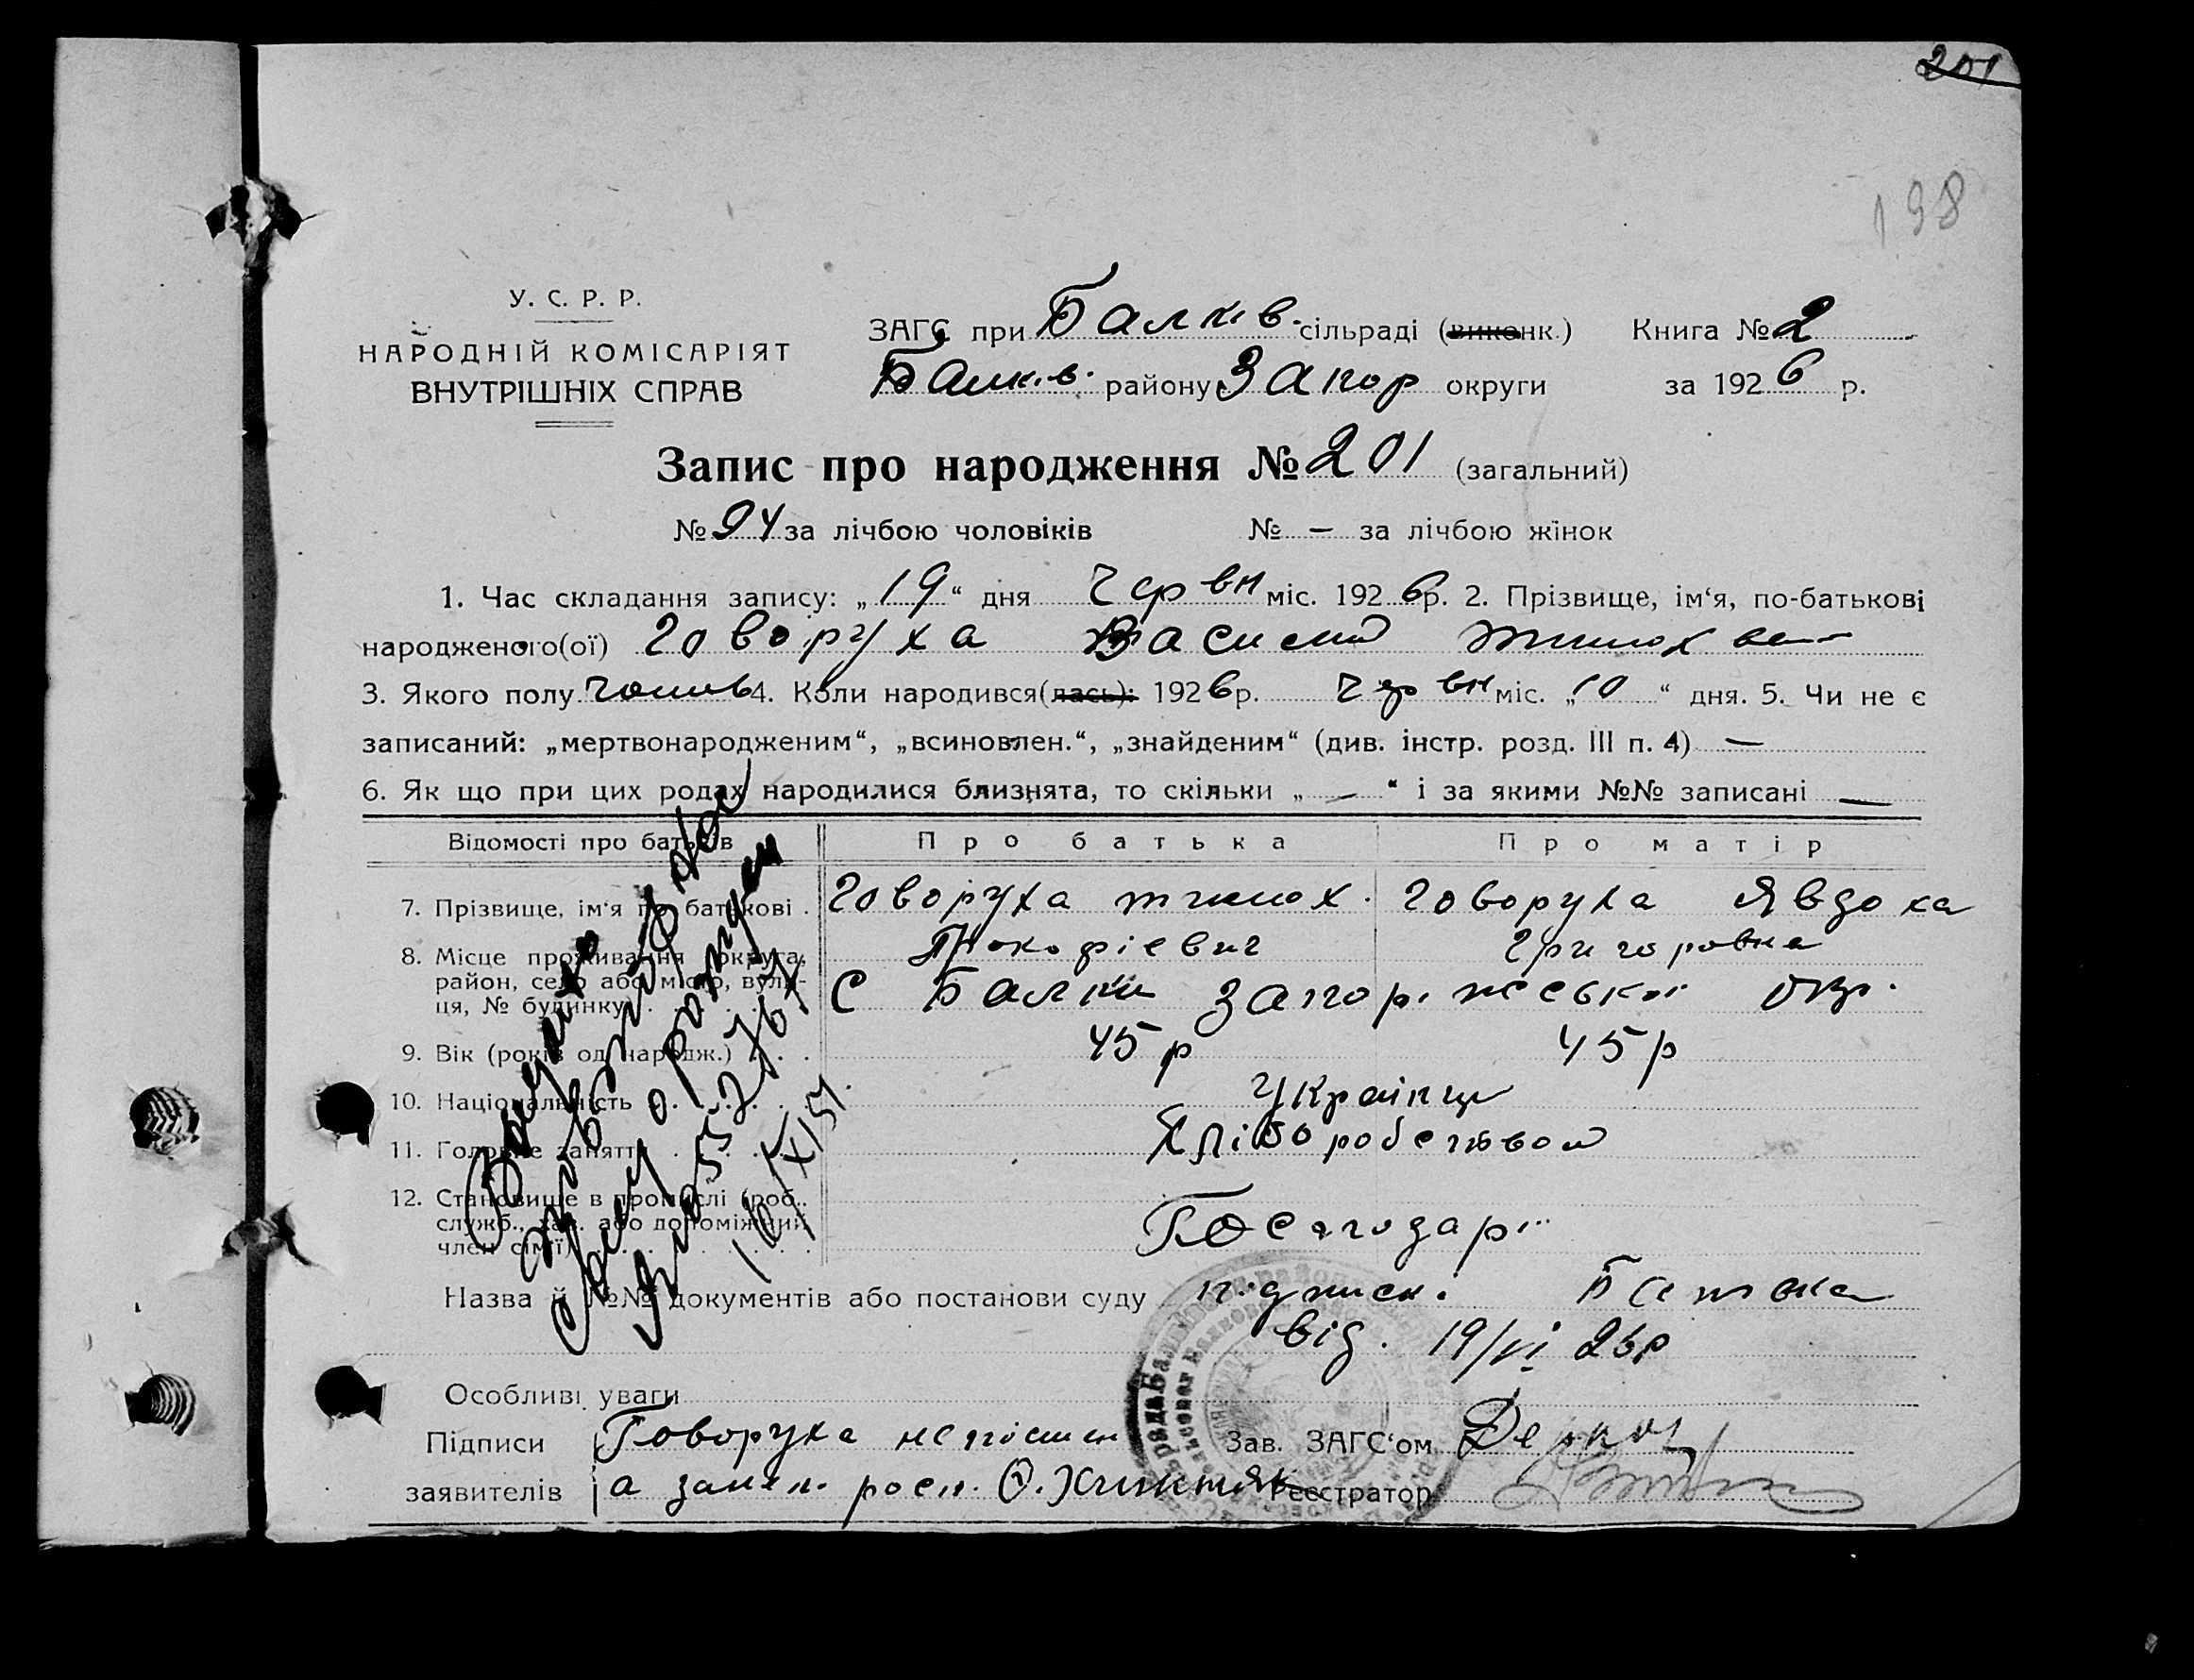 201
198
У. С. Р. Р.
НАРОДНІЙ КОМІСАРІЯТ
ВНУТРІШНІХ СПРАВ
ЗАГС при Балків. сільраді (виконк.) Книга № 2
Балків. району Запор округи за 1926 р.
Запис про народження № 201 (загальний)
№ 94 за лічбою чоловіків № — за лічбою жінок
1. Час складання запису: „19“ дня Червн міс. 1926р. 2. Прізвище, ім‘я, по-батькові
народженого(ої) Говоруха Василий Тимохве
3. Якого полу чолов 4. Коли народився(лась): 1926р. Червн міс. „10“ дня. 5. Чи не є
записаний: „мертвонародженим“, „всиновлен.“, „знайденим“ (див. інстр. розд. III п. 4) —
6. Як що при цих родах народилися близнята, то скільки „ — “ і за якими №№ записані —
Відомості про батьків Про батька Про матір
7. Прізвище, ім‘я по батькові . Говоруха тимох. Говоруха Явдоха
Прокофіевич Григоровна
8. Місце проживання (округа,
район, село або місто, вули-
ця, № будинку) . С Балки Запоріжської окр.
9. Вік (років од народж.) . . . 45 р 45 р
10. Національність . . . Українци
11. Головне заняття . . . Хліборобством
12. Становище в промислі (роб.,
служб., хаз. або допоміжний
член сім‘ї) . . . Господарі
Назва й №№ документів або постанови суду підписк. Батька
від. 19/VI 26р
Особливі уваги
Підписи Говоруха Зав. ЗАГС‘ом
заявителів а росп. О. Реєстратор
о
16/XI 51.